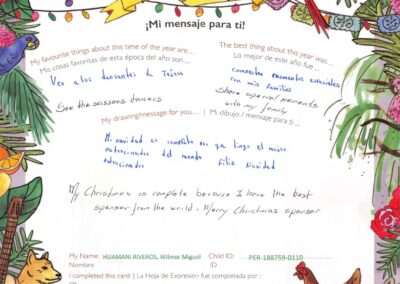 ¡Mi mensaje para ti!
My favourite things about this time of the year are...
Mis cosas favoritas de esta época del año son...
The best thing about this year was...
Lo mejor de este año fue...
Ver a los danzantes de Tijeras
See the scissors dancers
compartir momentos especiales
con mis familias
Share special moments
with my family
My drawing/message for you... | Mi dibujo / mensaje para ti...
Mi navidad es completo por ya tengo el mejor
patrocinador del mundo Feliz Navidad
patrocinador
My Christmas is complete because I have the best
sponsor from the world. Merry Christmas sponsor
My Name: HUAMANI RIVEROS, Wilmer Miguel Child ID: PER-188759-0110
Nombre: ID
I completed this card | La Hoja de Expresión fue completada por: